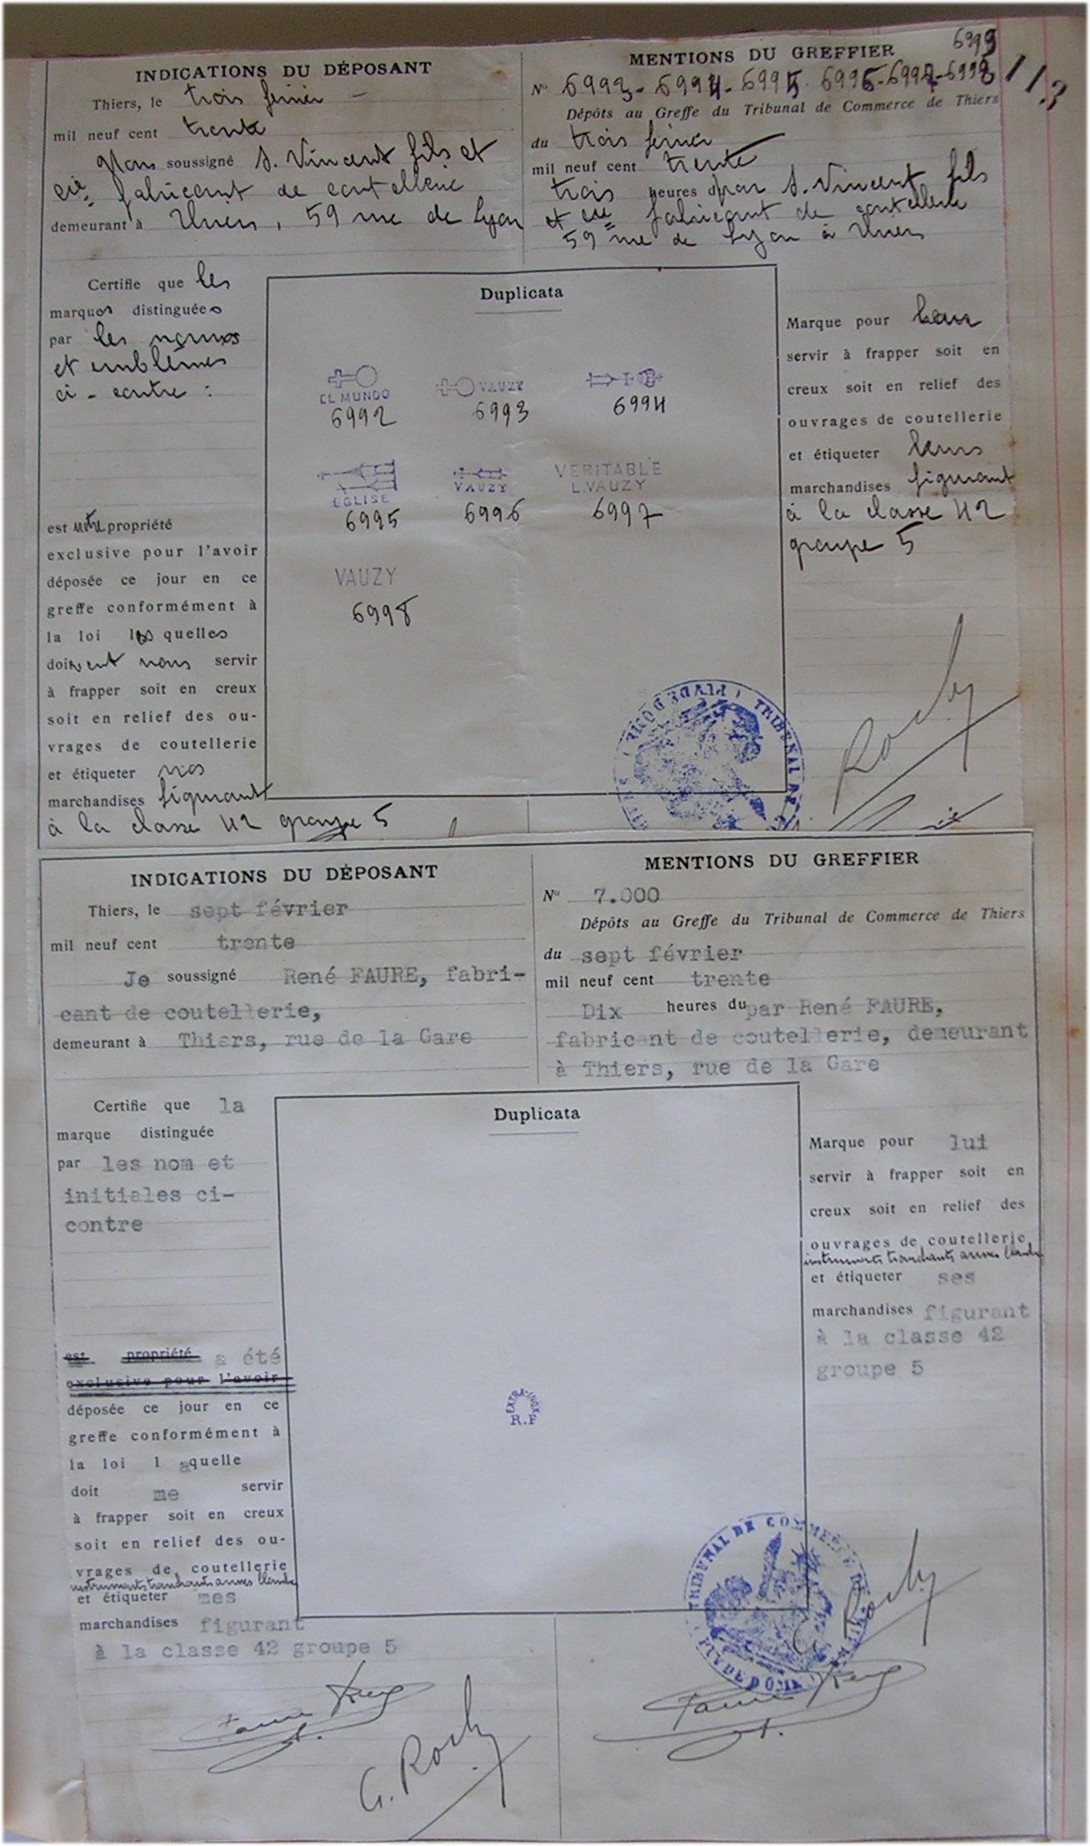 INDICATIONS DU DÉPOSANT
Thiers, le trois février
mil neuf cent trente
Nous soussigné A. Vincent fils et
cie fabricant de coutellerie
demeurant à Thiers, 59 rue de Lyon
MENTIONS DU GREFFIER 6999
N° 6993-6994-6995-6996-6997-6998
113
Dépôts au Greffe du Tribunal de Commerce de Thiers
du trois février
mil neuf cent trente
trois heures d par A. Vincent fils
et cie fabricant de coutellerie
59 rue de Lyon à Thiers
Certifie que les
marques distinguées
par les noms
et emblêmes
ci-contre :
est propriété
exclusive pour l'avoir
déposée ce jour en ce
greffe conformément à
la loi lesquelles
doivent nous servir
à frapper soit en creux
soit en relief des ou-
vrages de coutellerie
et étiqueter nos
marchandises figurant
à la classe 42 groupe 5
Duplicata
EL MUNDO
6992
VAUZY
6993
6994
EGLISE
6995
VAUZY
6996
VERITABLE
L.VAUZY
6997
VAUZY
6998
Marque pour leur
servir à frapper soit en
creux soit en relief des
ouvrages de coutellerie
et étiqueter leurs
marchandises figurant
à la classe 42
groupe 5
TRIBUNAL DE
PUY DE DOME
Rochy
INDICATIONS DU DÉPOSANT
Thiers, le sept février
mil neuf cent trente
Je soussigné René FAURE, fabri-
cant de coutellerie,
demeurant à Thiers, rue de la Gare
MENTIONS DU GREFFIER
N° 7.000
Dépôts au Greffe du Tribunal de Commerce de Thiers
du sept février
mil neuf cent trente
Dix heures du par René FAURE,
fabricant de coutellerie, demeurant
à Thiers, rue de la Gare
Certifie que la
marque distinguée
par les nom et
initiales ci-
contre
est propriété a été
exclusive pour l'avoir
déposée ce jour en ce
greffe conformément à
la loi laquelle
doit me servir
à frapper soit en creux
soit en relief des ou-
vrages de coutellerie
instruments tranchants armes blanches
et étiqueter mes
marchandises figurant
à la classe 42 groupe 5
Duplicata
EXTRA-INOX
R.F
Marque pour lui
servir à frapper soit en
creux soit en relief des
ouvrages de coutellerie
instruments tranchants armes blanches
et étiqueter ses
marchandises figurant
à la classe 42
groupe 5
TRIBUNAL DE COMMERCE DE
PUY DE DOME
G. Rochy
Faure René
G. Rochy
Faure René